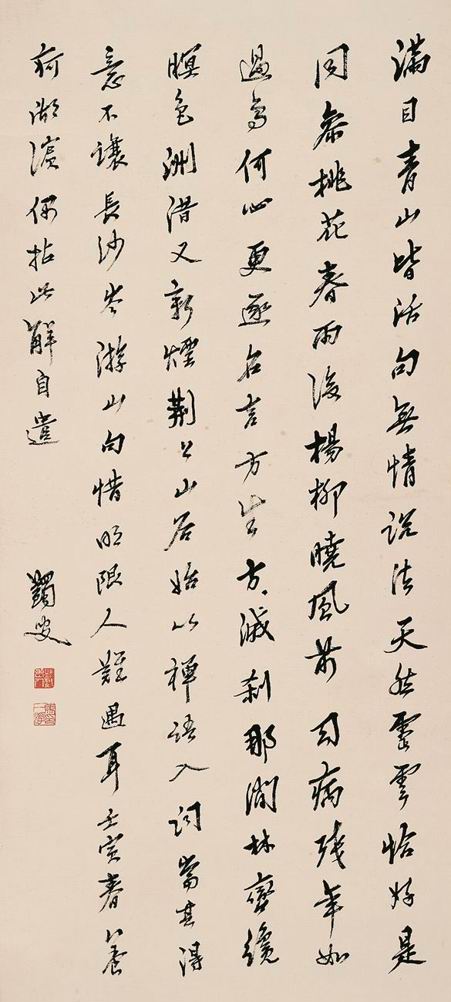 滿目青山皆活句無情說法天然靈雲恰好是
同參桃花春雨後楊柳曉風前目病殘年如
過鳥何心更逐名言方生方滅剎那間林齋纔
暝色洲渚又新煙荊公山居始以禪語入詞當其得
意不讓長沙岑游山句惜明眼人難遇耳壬寅春養
疴湖濱偶拈此解自遣
蠲叟